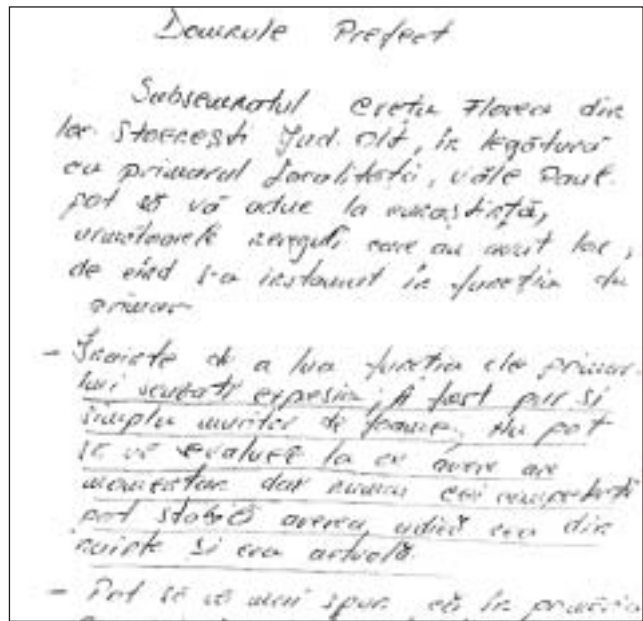 Domnule Prefect
Subsemnatul Crețu Florea din
loc. Stoenești Jud. Olt, în legătură
cu primarul localitații, Vâle Paul.
pot să vă aduc la cunoștință,
următoarele nereguli care au avut loc,
de cînd s-a instaurat în funcția de
primar
- Înainte de a lua funcția de primar
scuzați expresia, A fost pur si
simplu muritor de foame. Nu pot
să vă evaluez la ce avere are
momentan dar numai cei competenti
pot stabili averea, adică cea din
nainte si cea actuală.
- Pot să vă mai spun, că în primăria